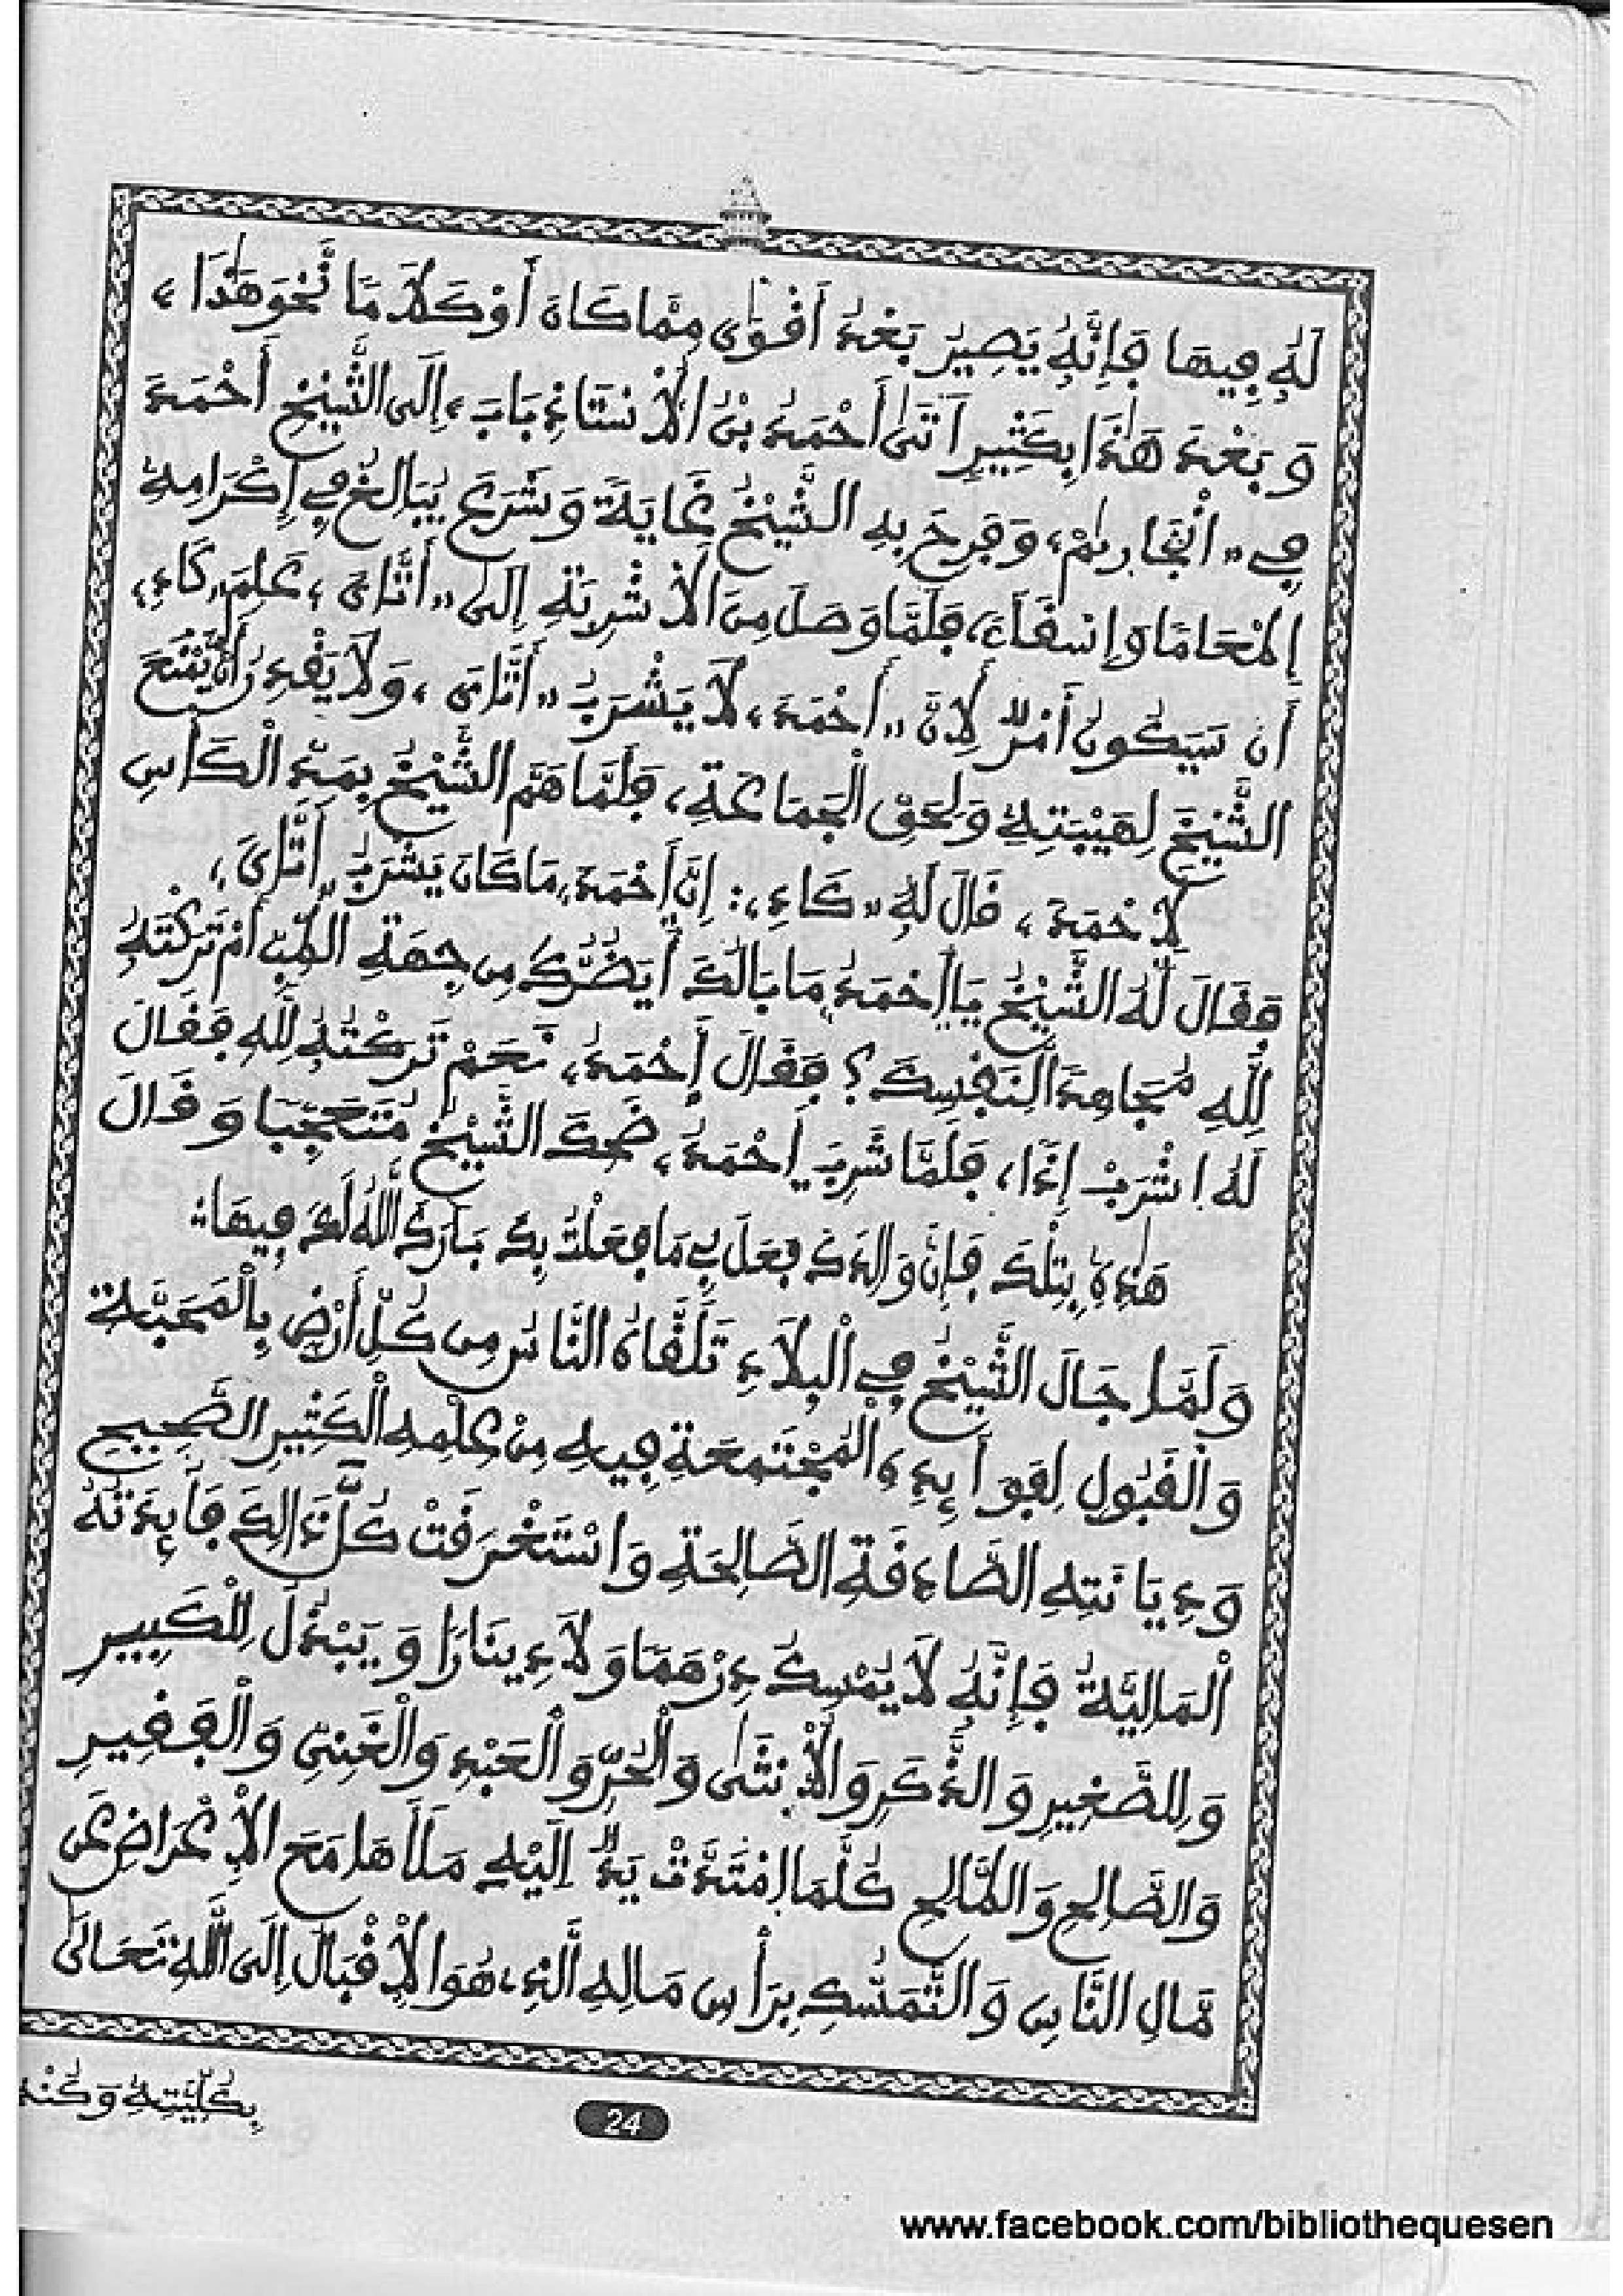 لَهُ فِيهَا فَإِنَّهُ يَصِيرُ بَعْدُ أَقْوَى مِمَّا كَانَ أَوْ كَلَامًا نَّحْوَ هَٰذَا،
وَبَعْدَ هَٰذَا بِكَثِيرٍ أَتَى أَحْمَدُ بْنُ الْأُسْتَاذِ بَابَ، إِلَى الشَّيْخِ أَحْمَدَ
فِي «انْجَارِمْ، وَفَرِحَ بِهِ الشَّيْخُ غَايَةً وَشَرَعَ يُبَالِغُ فِي إِكْرَامِهِ
إِطْعَامًا وَإِسْقَاءً، فَلَمَّا وَصَلَ مِنَ الْأَشْرِبَةِ إِلَى «أَتَّايَ، عَلِمَ «كَاءِ،
أَن سَيَكُونُ أَمْرٌ لِأَنَّ «أَحْمَدَ، لَا يَشْرَبُ «أَتَّايَ، وَلَا يَقْدِرُ أَنْ يَّمْنَعَ
الشَّيْخَ لِهَيْبَتِهِ وَلِحَقِّ الْجَمَاعَةِ، فَلَمَّا هَمَّ الشَّيْخُ بِمَدِّ الْكَأْسِ
لِأَحْمَدَ، قَالَ لَهُ «كَاءِ،: إِنَّ أَحْمَدَ، مَا كَانَ يَشْرَبُ «أَتَّايَ،
فَقَالَ لَهُ الشَّيْخُ يَا أَحْمَدُ مَا بَالُكَ أَيَضُرُّكَ مِن جِهَةِ الطِّبِّ أَمْ تَرَكْتَهُ
لِلَّهِ مُجَاهَدَةً لِّنَفْسِكَ؟ فَقَالَ أَحْمَدُ، نَعَمْ تَرَكْتُهُ لِلَّهِ فَقَالَ
لَهُ اشْرَبْ إِذًا، فَلَمَّا شَرِبَ أَحْمَدُ، ضَحِكَ الشَّيْخُ مُتَعَجِّبًا وَقَالَ
هَٰذِهِ بِتِلْكَ فَإِنَّ وَالِدَكَ فَعَلَ بِي مَا فَعَلْتُ بِكَ بَارَكَ اللَّهُ لَكَ فِيهَا:
وَلَمَّا جَالَ الشَّيْخُ فِي الْبِلَادِ تَلَقَّاهُ النَّاسُ مِن كُلِّ أَرْضٍ بِالْمَحَبَّةِ
وَالْقَبُولِ لِفَوَائِدِهِ الْمُجْتَمِعَةِ فِيهِ مِنْ عِلْمِهِ الْكَثِيرِ الصَّحِيحِ
وَدِيَانَتِهِ الصَّادِقَةِ الصَّالِحَةِ وَاسْتَغْرَقَتْ كُلَّ ذَٰلِكَ فَائِدَتُهُ
الْمَالِيَّةُ فَإِنَّهُ لَا يُمْسِكُ دِرْهَمًا وَلَا دِينَارًا وَيَبْذُلُ لِلْكَبِيرِ
وَلِلصَّغِيرِ وَالذَّكَرِ وَالْأُنثَى وَالْحُرِّ وَالْعَبْدِ وَالْغَنِيِّ وَالْفَقِيرِ
وَالصَّالِحِ وَالطَّالِحِ كُلَّمَا امْتَدَّتْ يَدٌ إِلَيْهِ مَلَأَهَا مَعَ الْإِعْرَاضِ عَن
مَّالِ النَّاسِ وَالتَّمَسُّكِ بِرَأْسِ مَالِهِ الَّذِي هُوَ الْإِقْبَالُ إِلَى اللَّهِ تَعَالَى
بِكُلِّيَّتِهِ وَكُنْهِ
24
www.facebook.com/bibliothequesen